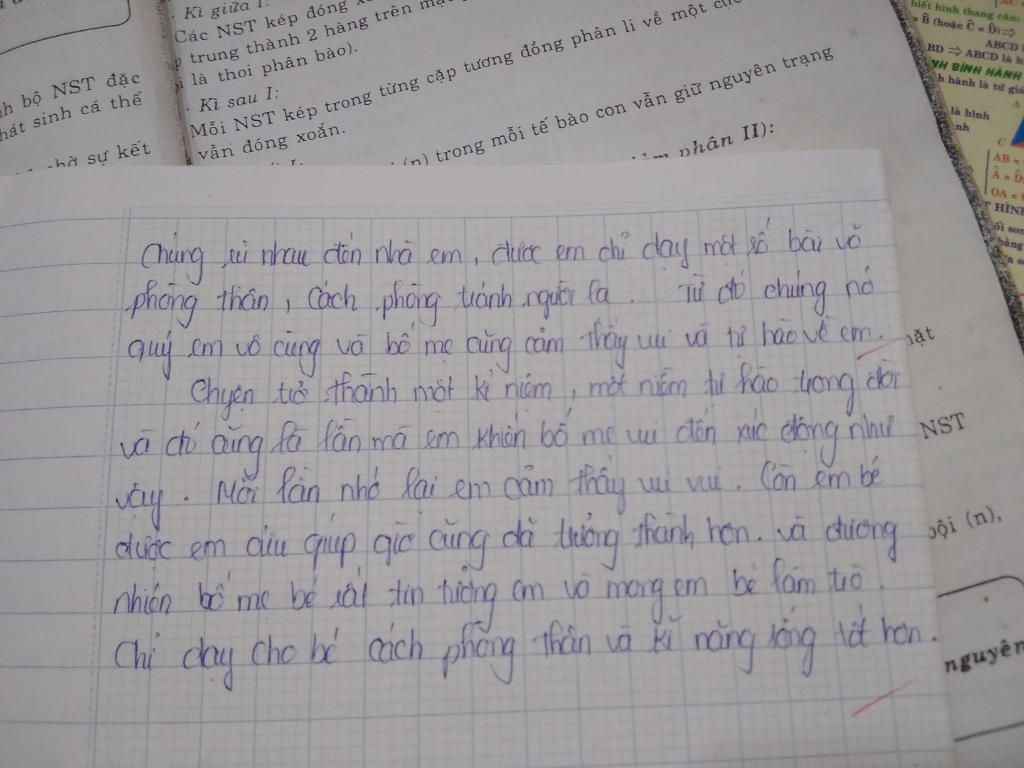 . Kì giữa I:
Các NST kép đóng x
trung thành 2 hàng trên mặt
là thoi phân bào).
. Kì sau I:
Mỗi NST kép trong từng cặp tương đồng phân li về một cực
vẫn đóng xoắn.
(n) trong mỗi tế bào con vẫn giữ nguyên trạng
phân II):
h bộ NST đặc
hát sinh cá thể
hờ sự kết
biết hình thang cân:
= B̂ (hoặc Ĉ = D̂) ⇒
ABCD
BD ⇒ ABCD là h
NH BÌNH HÀNH
h hành là tứ giá
A
là bình
nh
C
AB =
Â = D̂
OA =
T HÌNH
ối son
bằng
Chúng rủi nhau đến nhà em, được em chỉ dạy một số bài võ
phòng thân, cách phòng tránh người lạ. Từ đó chúng nó
quý em vô cùng và bố mẹ cũng cảm thấy vui và tự hào về em.
Chuyện trở thành một kỉ niệm, một niềm tự hào trong đời
và đó cũng là lần mà em khiến bố mẹ vui đến xúc động như
vậy. Mỗi lần nhớ lại em cảm thấy vui vui. Còn em bé
được em cứu giúp giờ cũng đã trưởng thành hơn. và đương
nhiên bố mẹ bé rất tin tưởng em và mong em bé làm trò.
Chỉ dạy cho bé cách phòng thân và kĩ năng sống tốt hơn.
mặt
NST
bội (n),
nguyên